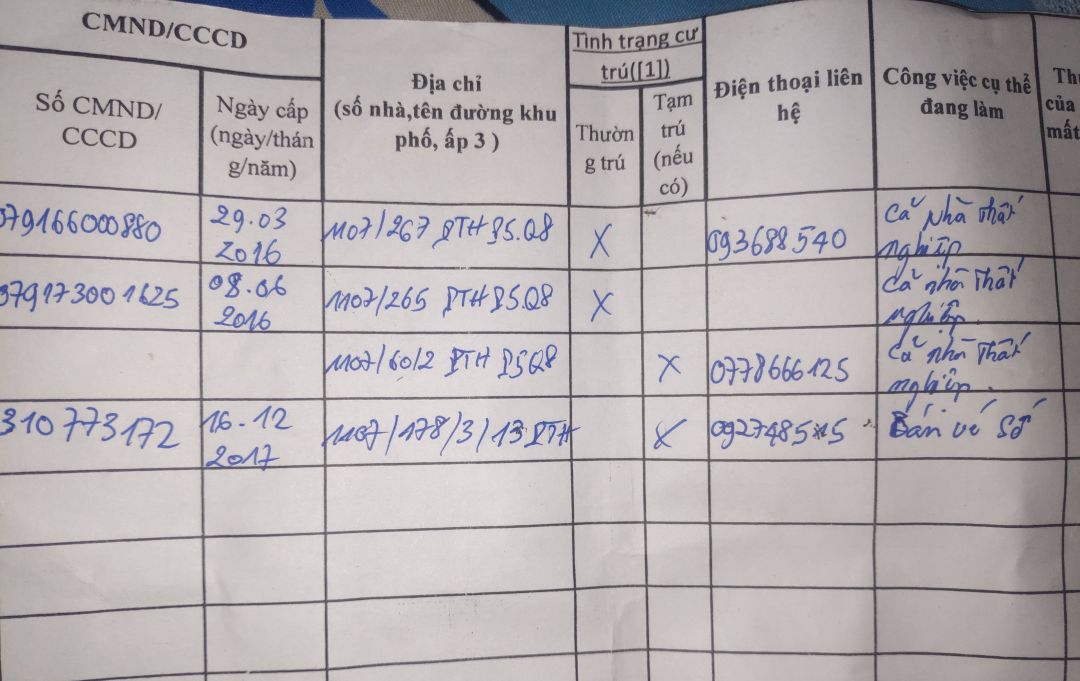 CMND/CCCD
Tình trạng cư
trú([1])
Địa chỉ
(số nhà,tên đường khu
phố, ấp 3 )
Điện thoại liên
hệ
Công việc cụ thể
đang làm
Th
của
mất
Số CMND/
CCCD
Ngày cấp
(ngày/thán
g/năm)
Thườn
g trú
Tạm
trú
(nếu
có)
079166000880
29.03
2016
1107/267 PTH P5.Q8
X
093688540
Cả nhà thất
nghiệp
079173001625
08.06
2016
1107/265 PTH P5Q8
X
Cả nhà thất
nghiệp
1107/60/2 PTH P5Q8
X
0778666125
Cả nhà thất
nghiệp.
310773172
16.12
2017
1107/178/3/13 PTH
X
Bán vé số